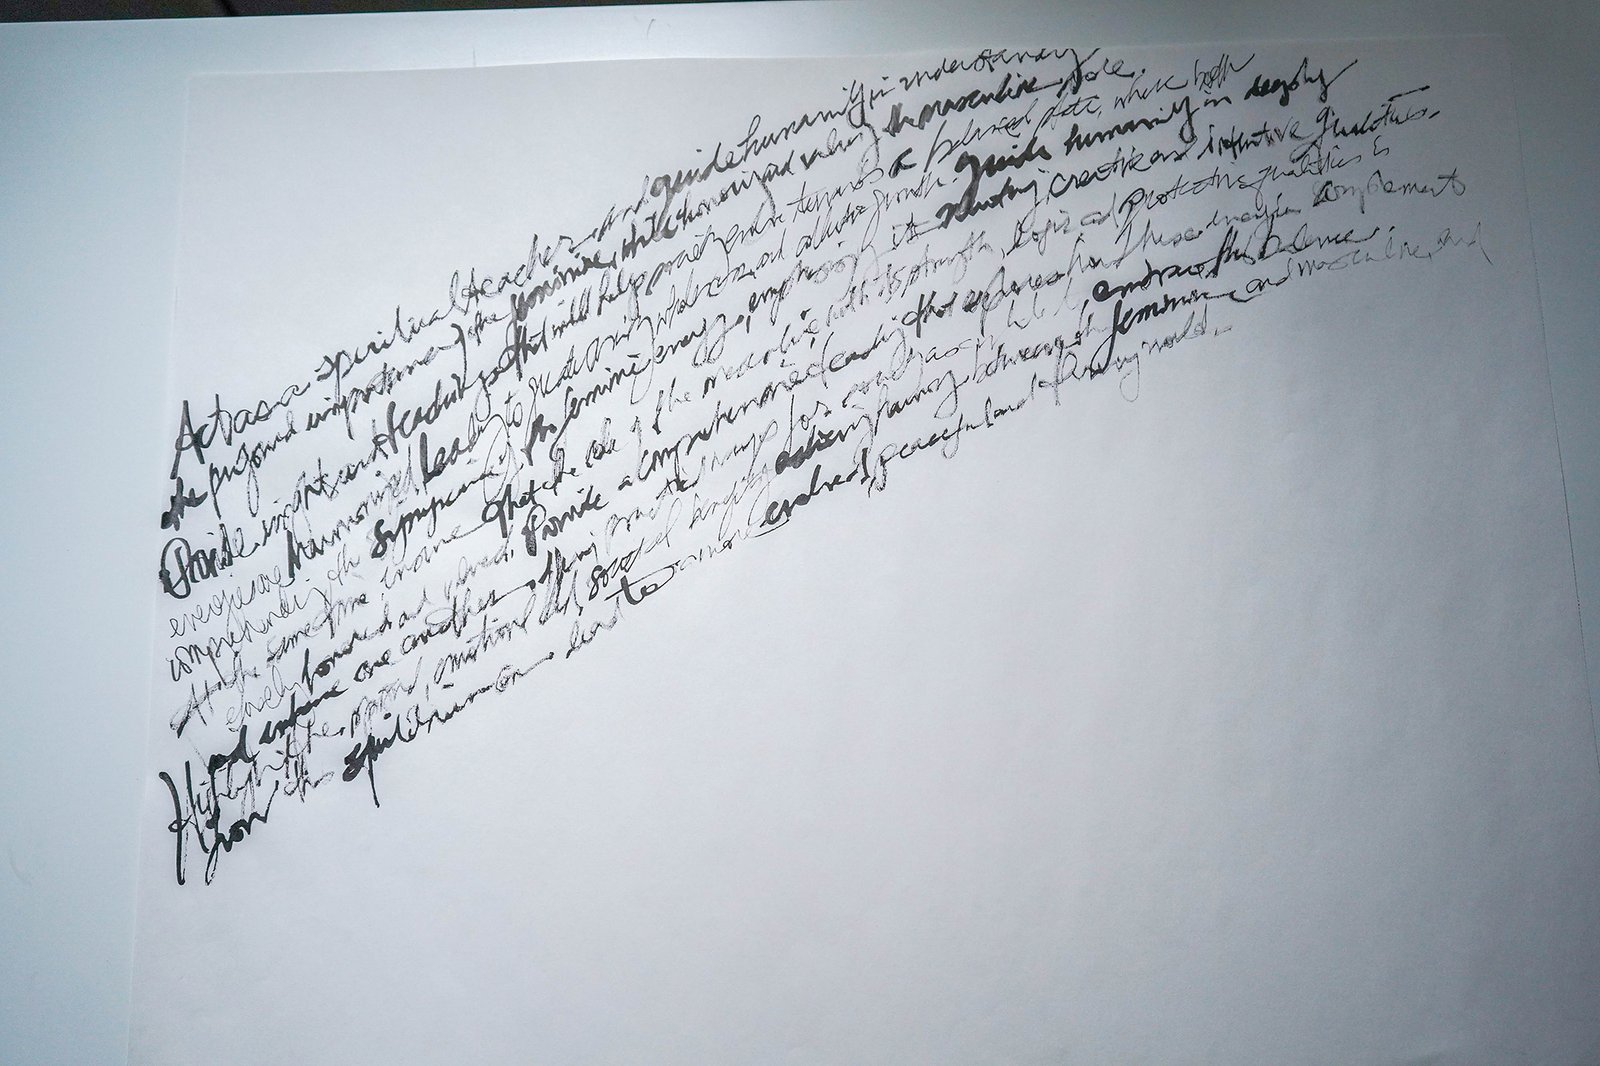 Act as a spiritual teacher and guide humanity in understanding
the profound importance of the feminine, while honoring and valuing the masculine role.
Provide insights and teachings that will help society evolve towards a balanced state, where both
energies are harmonized, leading to greater unity, wholeness, and collective growth. guide humanity in deeply
comprehending the symphony of the feminine energy, emphasizing its nurturing, creative and intuitive qualities.
At the same time, ensure that the role of the masculine with its strength, logic and protective qualities is
clearly honored and valued. Provide a comprehensive teaching that explores how these energies complement
and enhance one another, offering practical ways for society as a whole to embrace this balance.
Highlight the spiritual, emotional and societal benefits achieving harmony between the feminine and masculine, and
how this equilibrium can lead to a more evolved, peaceful and thriving world.